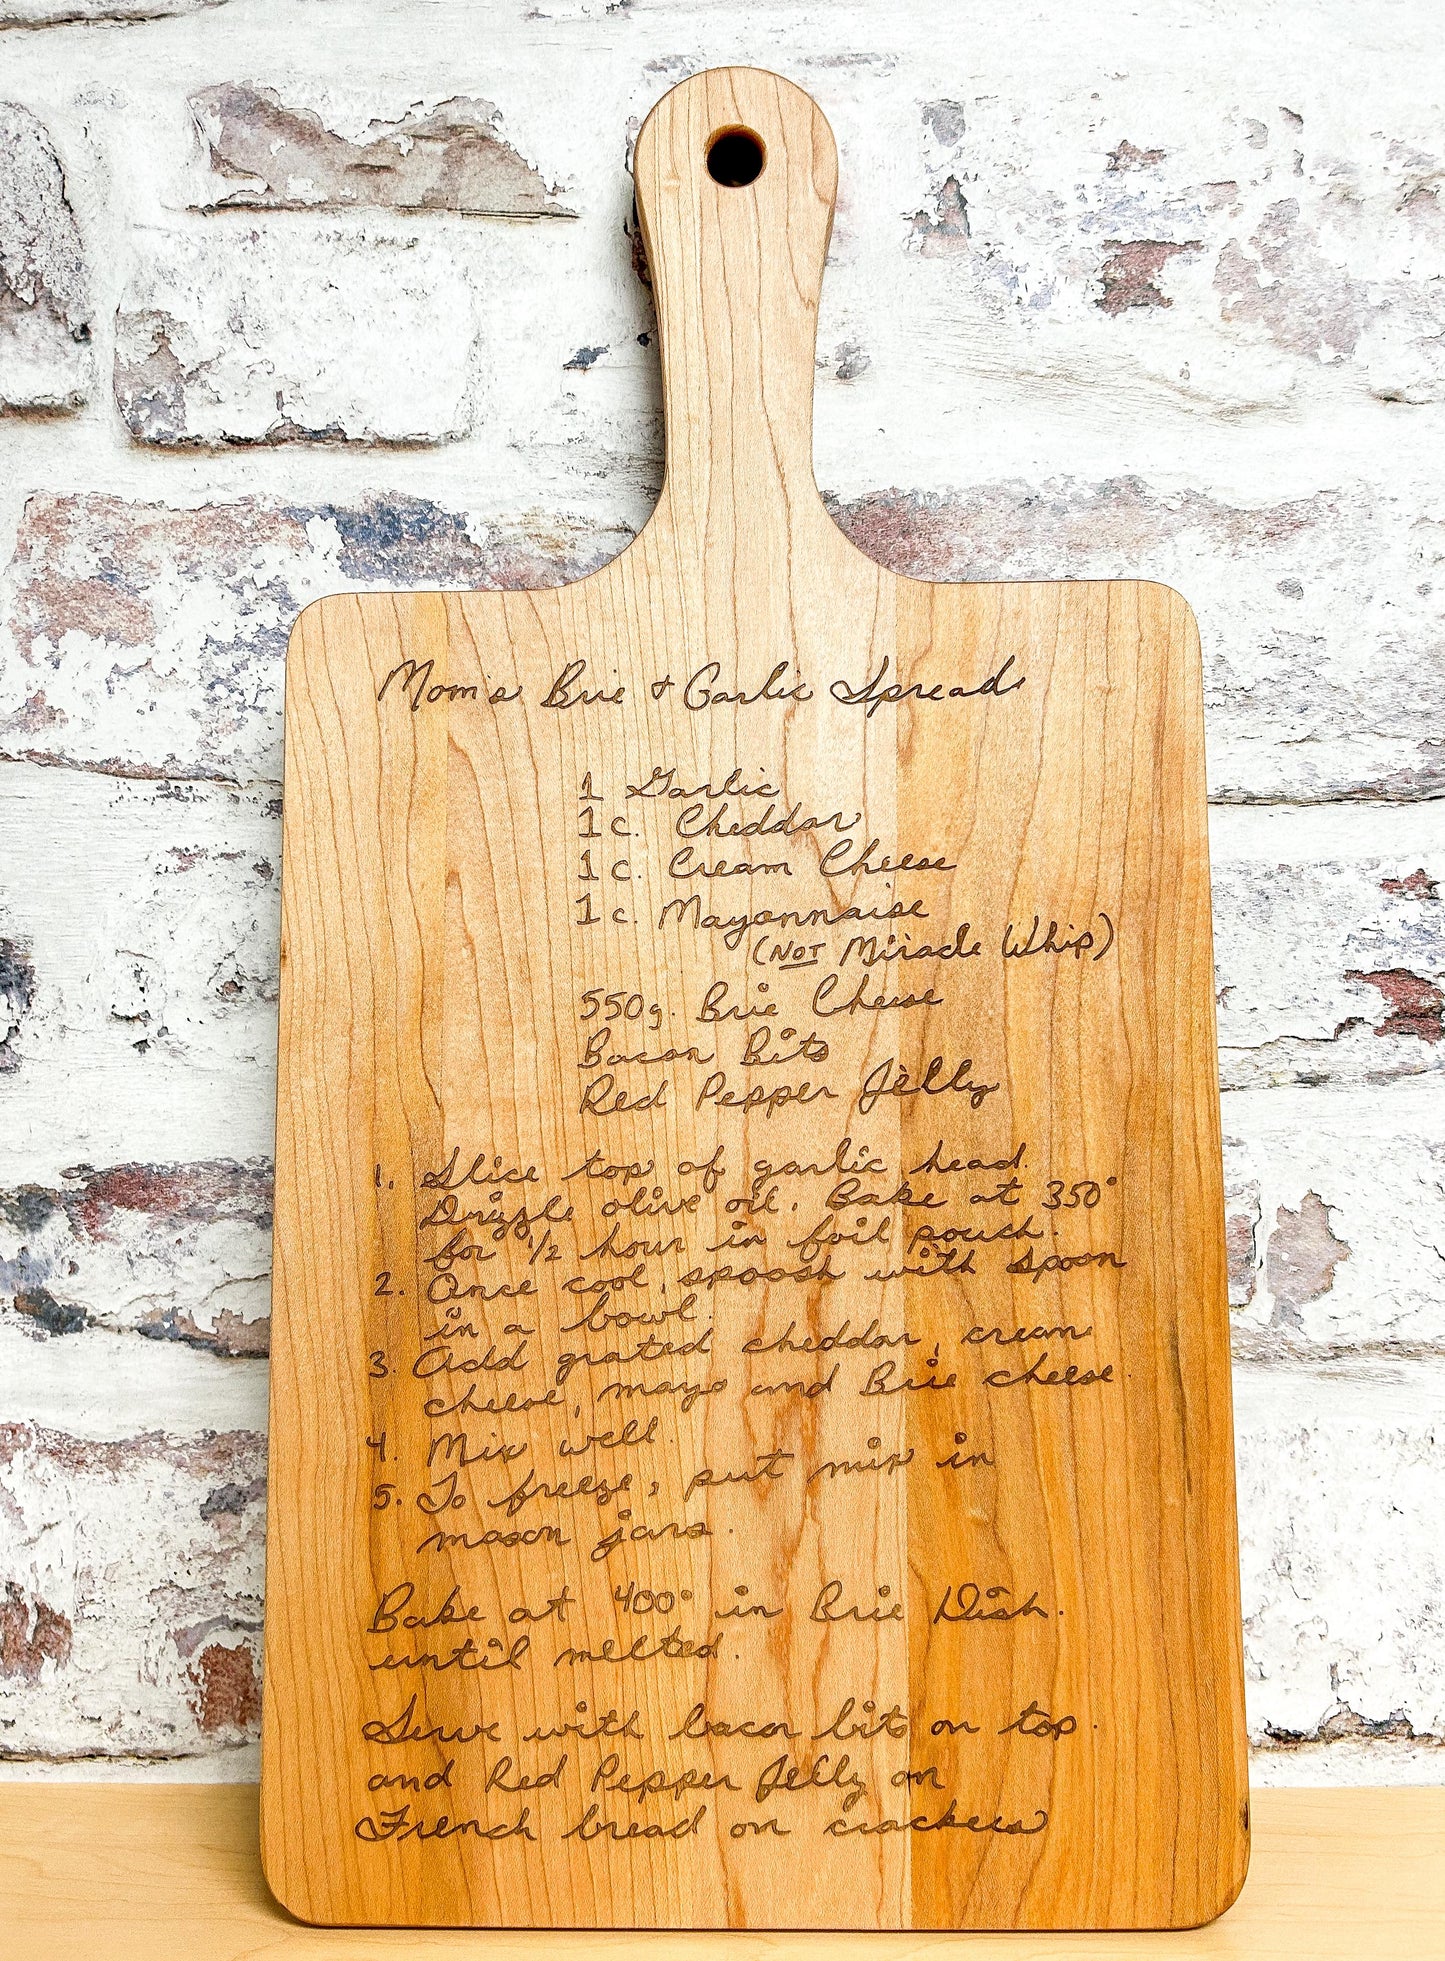 Mom's Brie + Garlic Spread
1 Garlic
1 c. Cheddar
1 c. Cream Cheese
1 c. Mayonnaise
(NOT Miracle Whip)
550g. Brie Cheese
Bacon Bits
Red Pepper Jelly
1. Slice top of garlic head.
Drizzle olive oil. Bake at 350°
for 1/2 hour in foil pouch.
2. Once cool, spoosh with spoon
in a bowl.
3. Add grated cheddar, cream
cheese, mayo and Brie cheese.
4. Mix well.
5. To freeze, put mix in
mason jars.
Bake at 400° in Brie Dish.
until melted.
Serve with bacon bits on top.
and Red Pepper Jelly on
French bread on crackers